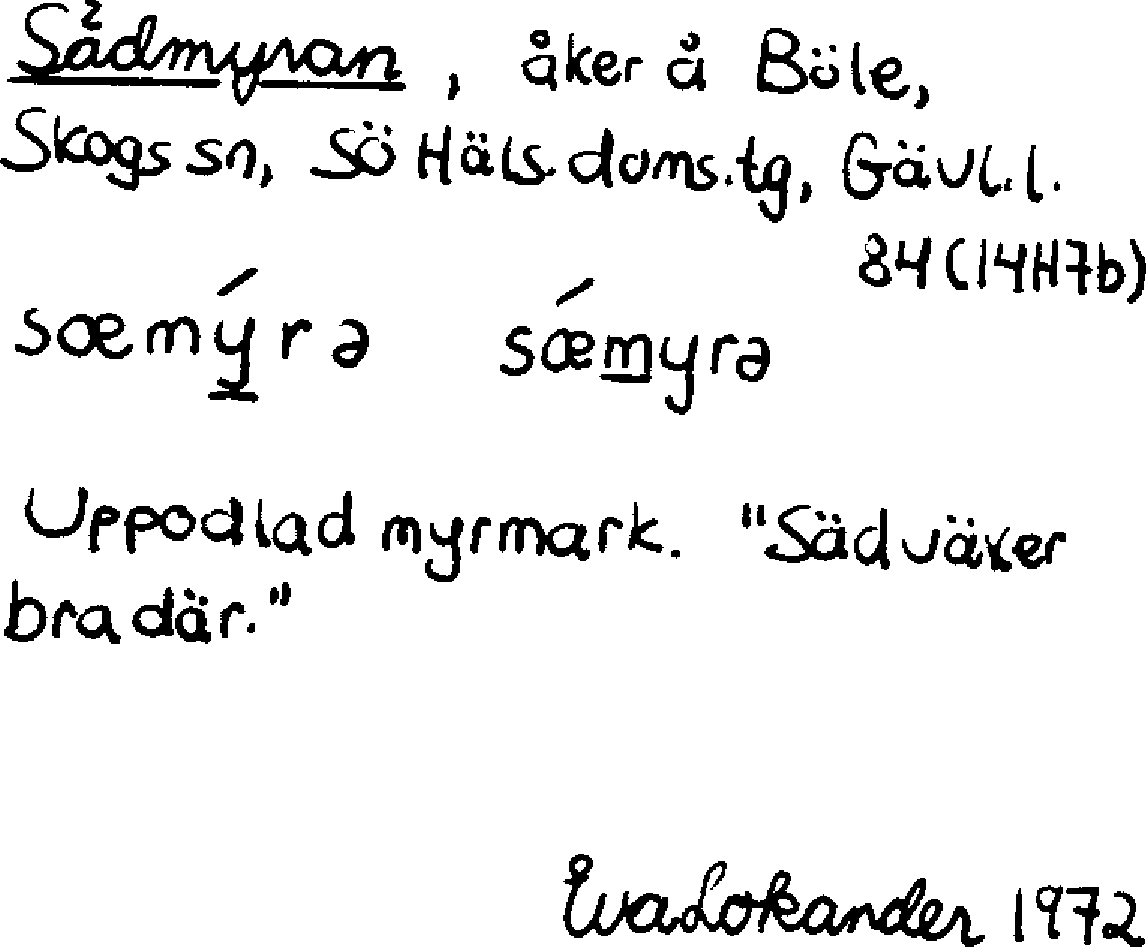 Sädmyran, åker å Böle,
Skogs sn, Sö Häls. doms.tg, Gävl.l.
84 (14H7b)
sœmýrə sœ́myrə
Uppodlad myrmark. "Säd växer
bra där."
Eva Lokander 1972